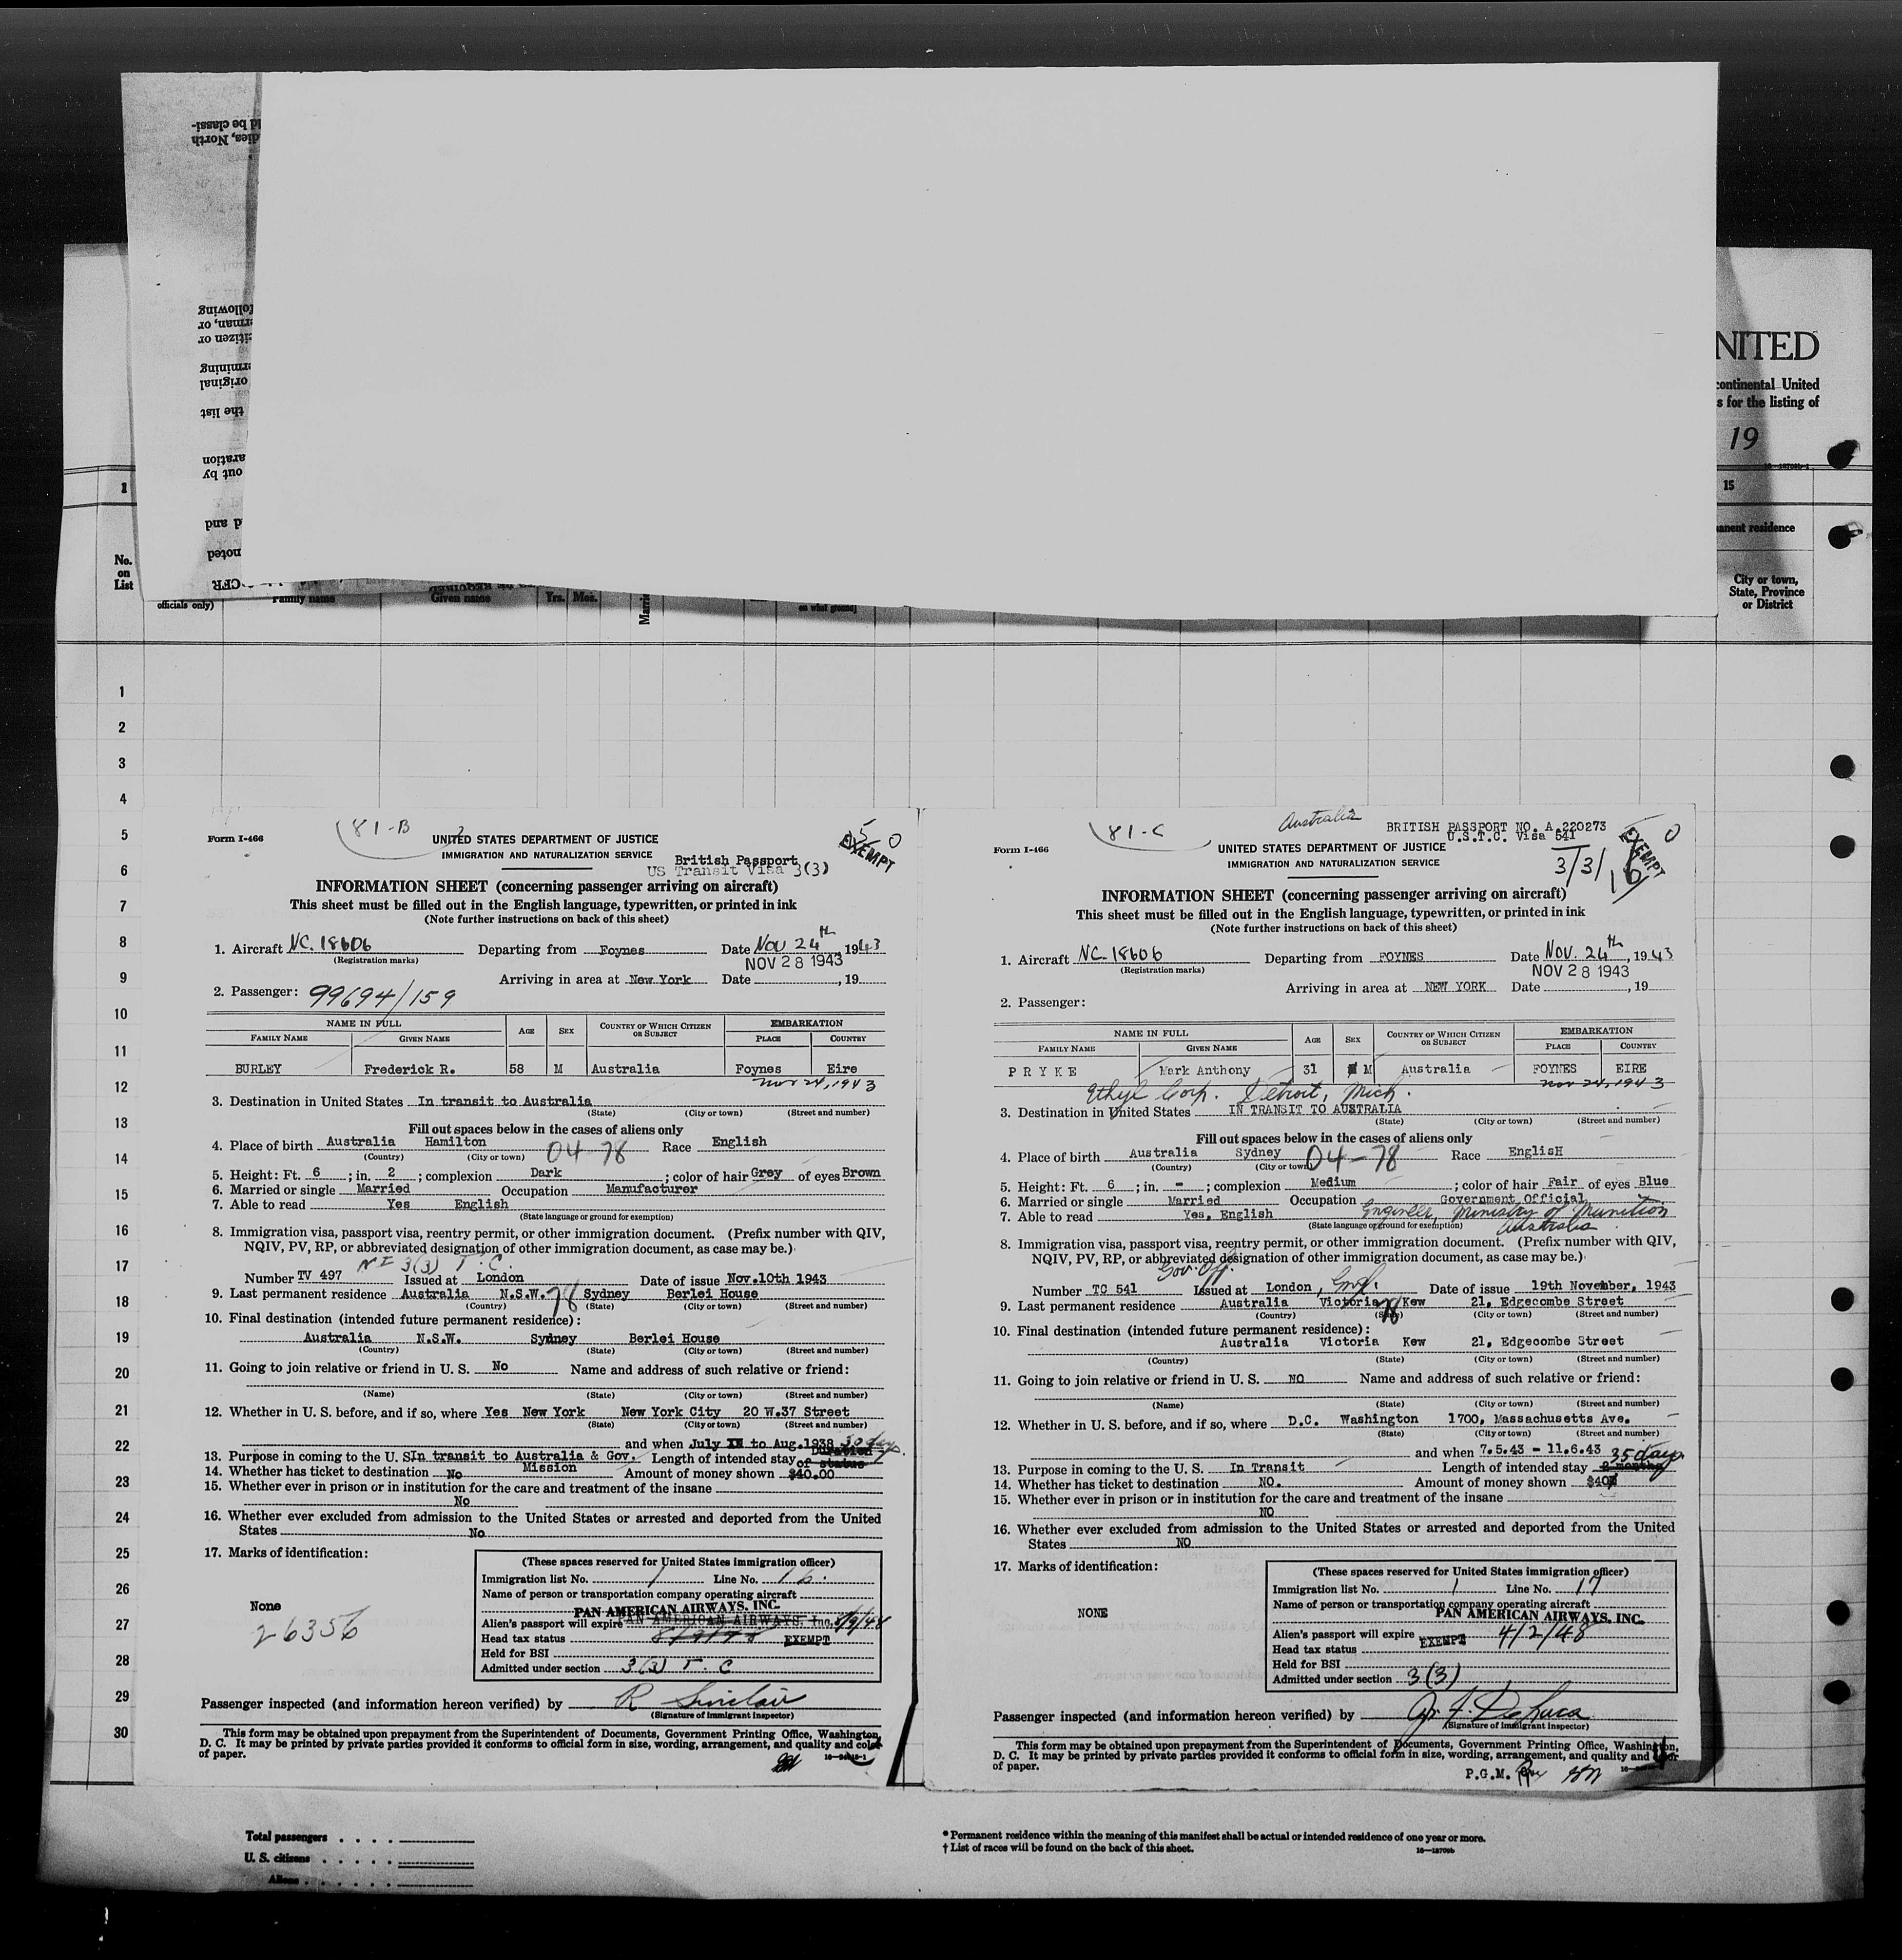 NITED
continental United
s for the listing of
19
16—18709b-1
1
15
anent residence
No.
on
List
City or town,
State, Province
or District
officials only)
Family name
Given name
Yrs. Mos.
on what ground)
1
2
3
4
5
6
7
8
9
10
11
12
13
14
15
16
17
18
19
20
21
22
23
24
25
26
27
28
29
30
81-B
Form I-466
UNITED STATES DEPARTMENT OF JUSTICE
EXEMPT
IMMIGRATION AND NATURALIZATION SERVICE
British Passport
US Transit Visa 3(3)
INFORMATION SHEET (concerning passenger arriving on aircraft)
This sheet must be filled out in the English language, typewritten, or printed in ink
(Note further instructions on back of this sheet)
1. Aircraft NC. 18606 Departing from Foynes Date Nov 24th, 1943
(Registration marks)
NOV 28 1943
Arriving in area at New York Date , 19
2. Passenger: 99694/159
NAME IN FULL AGE SEX COUNTRY OF WHICH CITIZEN OR SUBJECT EMBARKATION
FAMILY NAME GIVEN NAME PLACE COUNTRY
BURLEY Frederick R. 58 M Australia Foynes Eire
Nov 24, 1943
3. Destination in United States In transit to Australia
(State) (City or town) (Street and number)
Fill out spaces below in the cases of aliens only
4. Place of birth Australia Hamilton 04-78 Race English
(Country) (City or town)
5. Height: Ft. 6 ; in. 2 ; complexion Dark ; color of hair Grey of eyes Brown
6. Married or single Married Occupation Manufacturer
7. Able to read Yes English
(State language or ground for exemption)
8. Immigration visa, passport visa, reentry permit, or other immigration document. (Prefix number with QIV,
NQIV, PV, RP, or abbreviated designation of other immigration document, as case may be.)
3(3) T.C.
Number TV 497 Issued at London Date of issue Nov.10th 1943
9. Last permanent residence Australia N.S.W. 78 Sydney Berlei House
(Country) (State) (City or town) (Street and number)
10. Final destination (intended future permanent residence):
Australia N.S.W. Sydney Berlei House
(Country) (State) (City or town) (Street and number)
11. Going to join relative or friend in U. S. No Name and address of such relative or friend:
(Name) (State) (City or town) (Street and number)
12. Whether in U. S. before, and if so, where Yes New York New York City 20 W.37 Street
(State) (City or town) (Street and number)
and when July to Aug.1938 30 days
13. Purpose in coming to the U. S. In transit to Australia & Gov. Mission Length of intended stay Duration of status
14. Whether has ticket to destination No Amount of money shown $40.00
15. Whether ever in prison or in institution for the care and treatment of the insane
No
16. Whether ever excluded from admission to the United States or arrested and deported from the United
States No
17. Marks of identification:
None
26356
(These spaces reserved for United States immigration officer)
Immigration list No. 1 Line No. 16.
Name of person or transportation company operating aircraft
PAN AMERICAN AIRWAYS, INC.
Alien's passport will expire PAN AMERICAN AIRWAYS, Inc. 8/9/48
Head tax status EXEMPT
Held for BSI
Admitted under section 3(3) T.C
Passenger inspected (and information hereon verified) by R Sinclair
(Signature of immigrant inspector)
This form may be obtained upon prepayment from the Superintendent of Documents, Government Printing Office, Washington,
D. C. It may be printed by private parties provided it conforms to official form in size, wording, arrangement, and quality and color
of paper.
81-C
Australia
BRITISH PASSPORT NO. A 220273
U.S.T.C. Visa 541
Form I-466
UNITED STATES DEPARTMENT OF JUSTICE
3/3/
EXEMPT
IMMIGRATION AND NATURALIZATION SERVICE
INFORMATION SHEET (concerning passenger arriving on aircraft)
This sheet must be filled out in the English language, typewritten, or printed in ink
(Note further instructions on back of this sheet)
1. Aircraft NC-18606 Departing from FOYNES Date Nov. 24th, 1943
(Registration marks)
NOV 28 1943
Arriving in area at NEW YORK Date , 19
2. Passenger:
NAME IN FULL AGE SEX COUNTRY OF WHICH CITIZEN OR SUBJECT EMBARKATION
FAMILY NAME GIVEN NAME PLACE COUNTRY
PRYKE Mark Anthony 31 M Australia FOYNES EIRE
Nov 24, 1943
Ethyl Corp. Detroit, Mich.
3. Destination in United States IN TRANSIT TO AUSTRALIA
(State) (City or town) (Street and number)
Fill out spaces below in the cases of aliens only
4. Place of birth Australia Sydney 04-78 Race EnglisH
(Country) (City or town)
5. Height: Ft. 6 ; in. - ; complexion Medium ; color of hair Fair of eyes Blue
6. Married or single Married Occupation Government Official
7. Able to read Yes, English Engineer, Ministry of Munition
(State language or ground for exemption) Australia
8. Immigration visa, passport visa, reentry permit, or other immigration document. (Prefix number with QIV,
NQIV, PV, RP, or abbreviated designation of other immigration document, as case may be.)
Gov. Off.
Number TC 541 Issued at London, Date of issue 19th November, 1943
9. Last permanent residence Australia Victoria 78 Kew 21, Edgecombe Street
(Country) (State) (City or town) (Street and number)
10. Final destination (intended future permanent residence):
Australia Victoria Kew 21, Edgecombe Street
(Country) (State) (City or town) (Street and number)
11. Going to join relative or friend in U. S. NO Name and address of such relative or friend:
(Name) (State) (City or town) (Street and number)
12. Whether in U. S. before, and if so, where D.C. Washington 1700, Massachusetts Ave.
(State) (City or town) (Street and number)
and when 7.5.43 - 11.6.43 35 days
13. Purpose in coming to the U. S. In Transit Length of intended stay 2 months
14. Whether has ticket to destination NO. Amount of money shown $40
15. Whether ever in prison or in institution for the care and treatment of the insane
NO
16. Whether ever excluded from admission to the United States or arrested and deported from the United
States NO
17. Marks of identification:
NONE
(These spaces reserved for United States immigration officer)
Immigration list No. 1 Line No. 17
Name of person or transportation company operating aircraft
PAN AMERICAN AIRWAYS, INC.
Alien's passport will expire 4/2/48
Head tax status EXEMPT
Held for BSI
Admitted under section 3(3)
Passenger inspected (and information hereon verified) by
(Signature of immigrant inspector)
This form may be obtained upon prepayment from the Superintendent of Documents, Government Printing Office, Washington,
D. C. It may be printed by private parties provided it conforms to official form in size, wording, arrangement, and quality and color
of paper.
P.G.M.
Total passengers
U. S. citizens
Aliens
* Permanent residence within the meaning of this manifest shall be actual or intended residence of one year or more.
† List of races will be found on the back of this sheet.
16—18709b